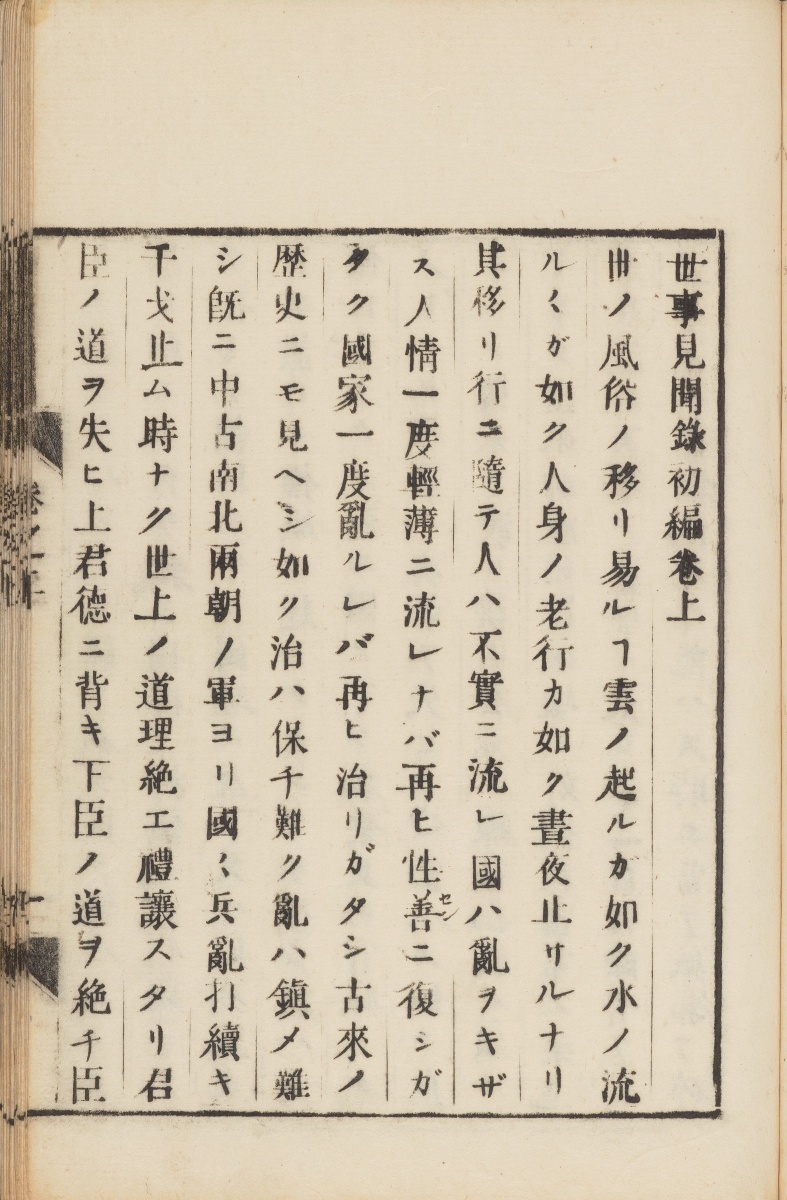 世事見聞錄初編卷上
世ノ風俗ノ移リ易ルヿ雲ノ起ルカ如ク水ノ流
ルヽガ如ク人身ノ老行カ如ク晝夜止サルナリ
其移リ行ニ隨テ人ハ不實ニ流レ國ハ亂ヲキザ
ス人情一度輕薄ニ流レナバ再ヒ性善ニ復シガ
セン
タク國家一度亂ルレバ再ヒ治リガタシ古來ノ
歷史ニモ見ヘシ如ク治ハ保チ難ク亂ハ鎭メ難
シ既ニ中古南北兩朝ノ軍ヨリ國〻兵亂打續キ
干戈止ム時ナク世上ノ道理絶エ禮讓スタリ君
臣ノ道ヲ失ヒ上君德ニ背キ下臣ノ道ヲ絶チ臣